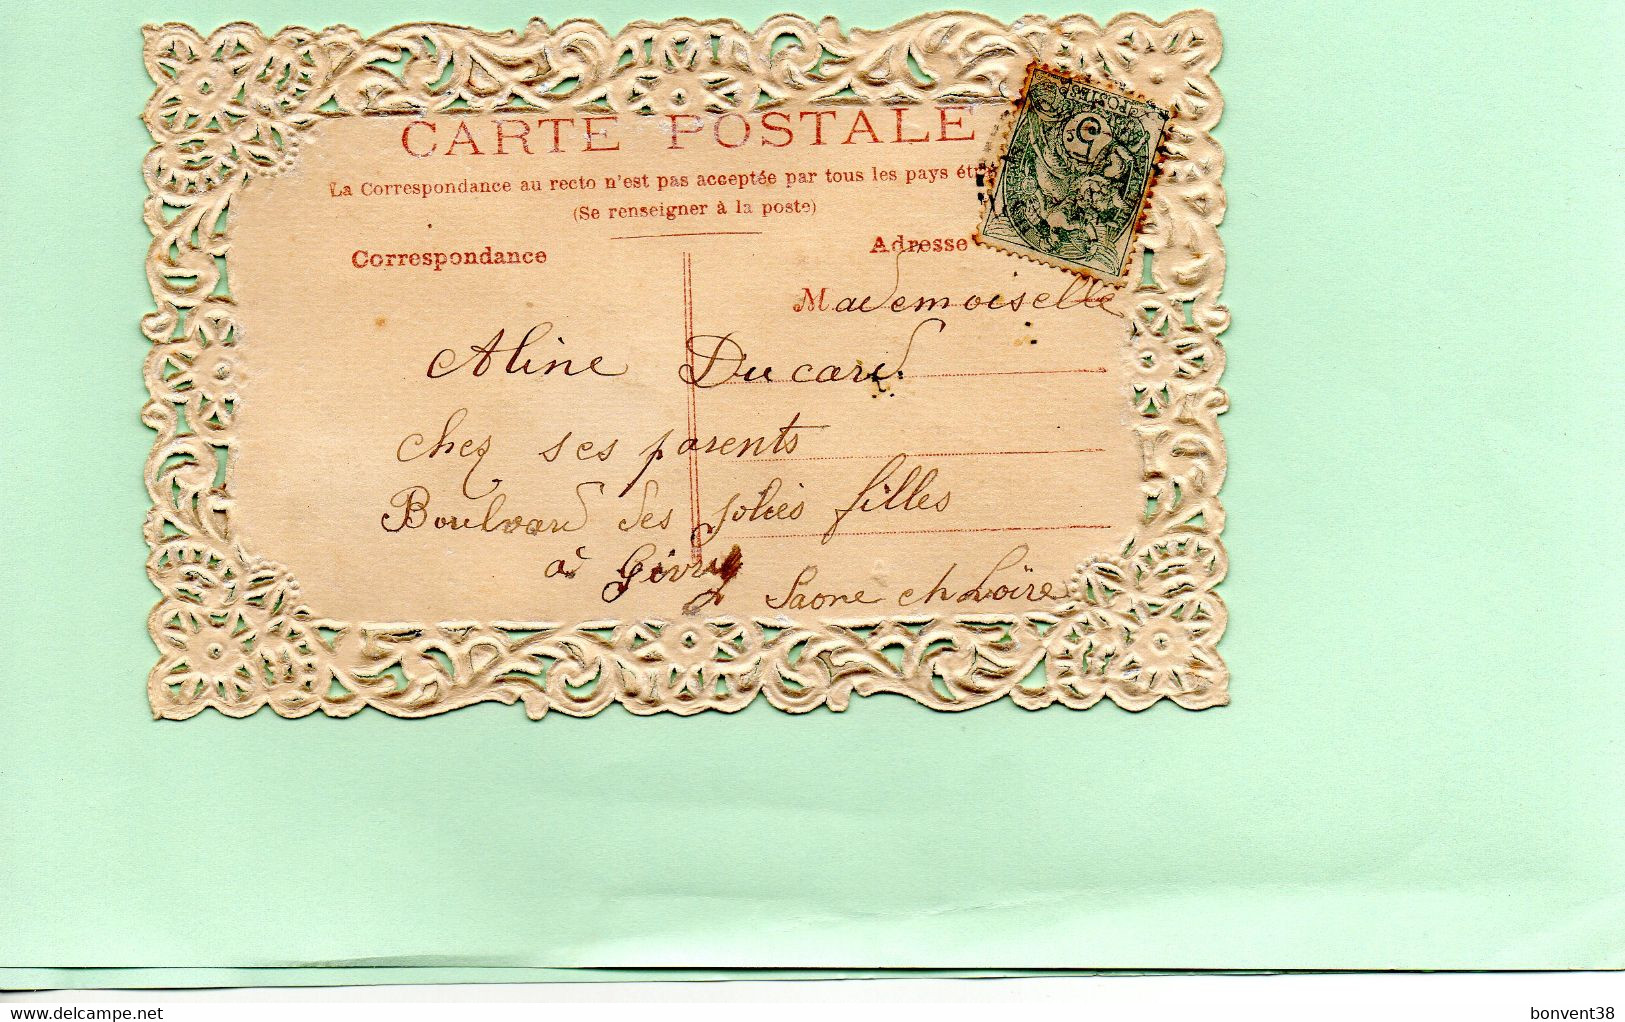 CARTE POSTALE
La Correspondance au recto n'est pas acceptée par tous les pays
(Se renseigner à la poste)
Correspondance
Adresse
Mademoiselle
Aline Ducard
chez ses parents
Boulvard des jolies filles
à Givry Saone et Loire
POSTES
5
www.delcampe.net
bonvent38